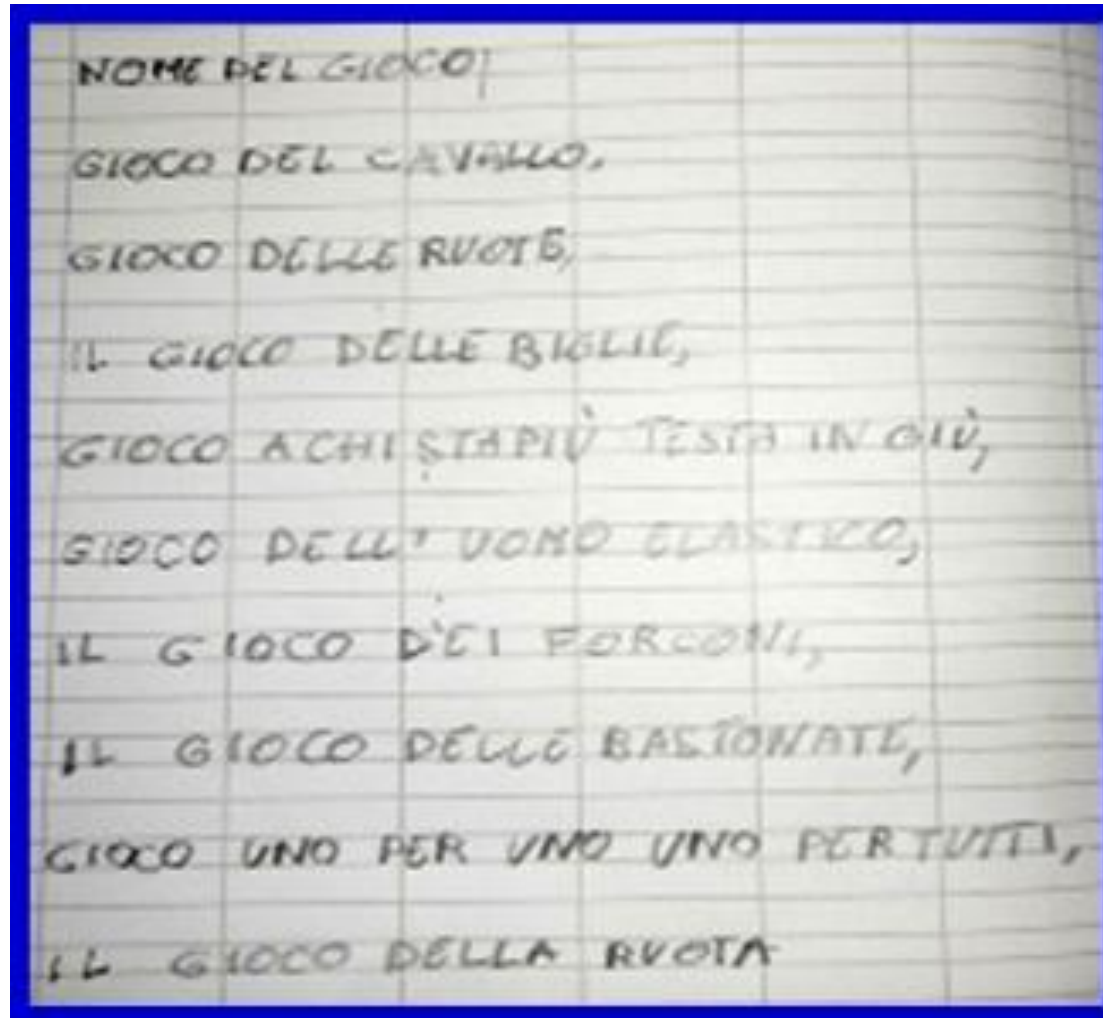 NOME DEL GIOCO;
GIOCO DEL CAVALLO.
GIOCO DELLE RUOTE,
IL GIOCO DELLE BIGLIE,
GIOCO A CHI STA PIÙ TESTA IN GIÙ,
GIOCO DELL'UOMO ELASTICO,
IL GIOCO DEI FORCONI,
IL GIOCO DELLE BASTONATE,
GIOCO UNO PER UNO UNO PER TUTTI,
IL GIOCO DELLA RUOTA